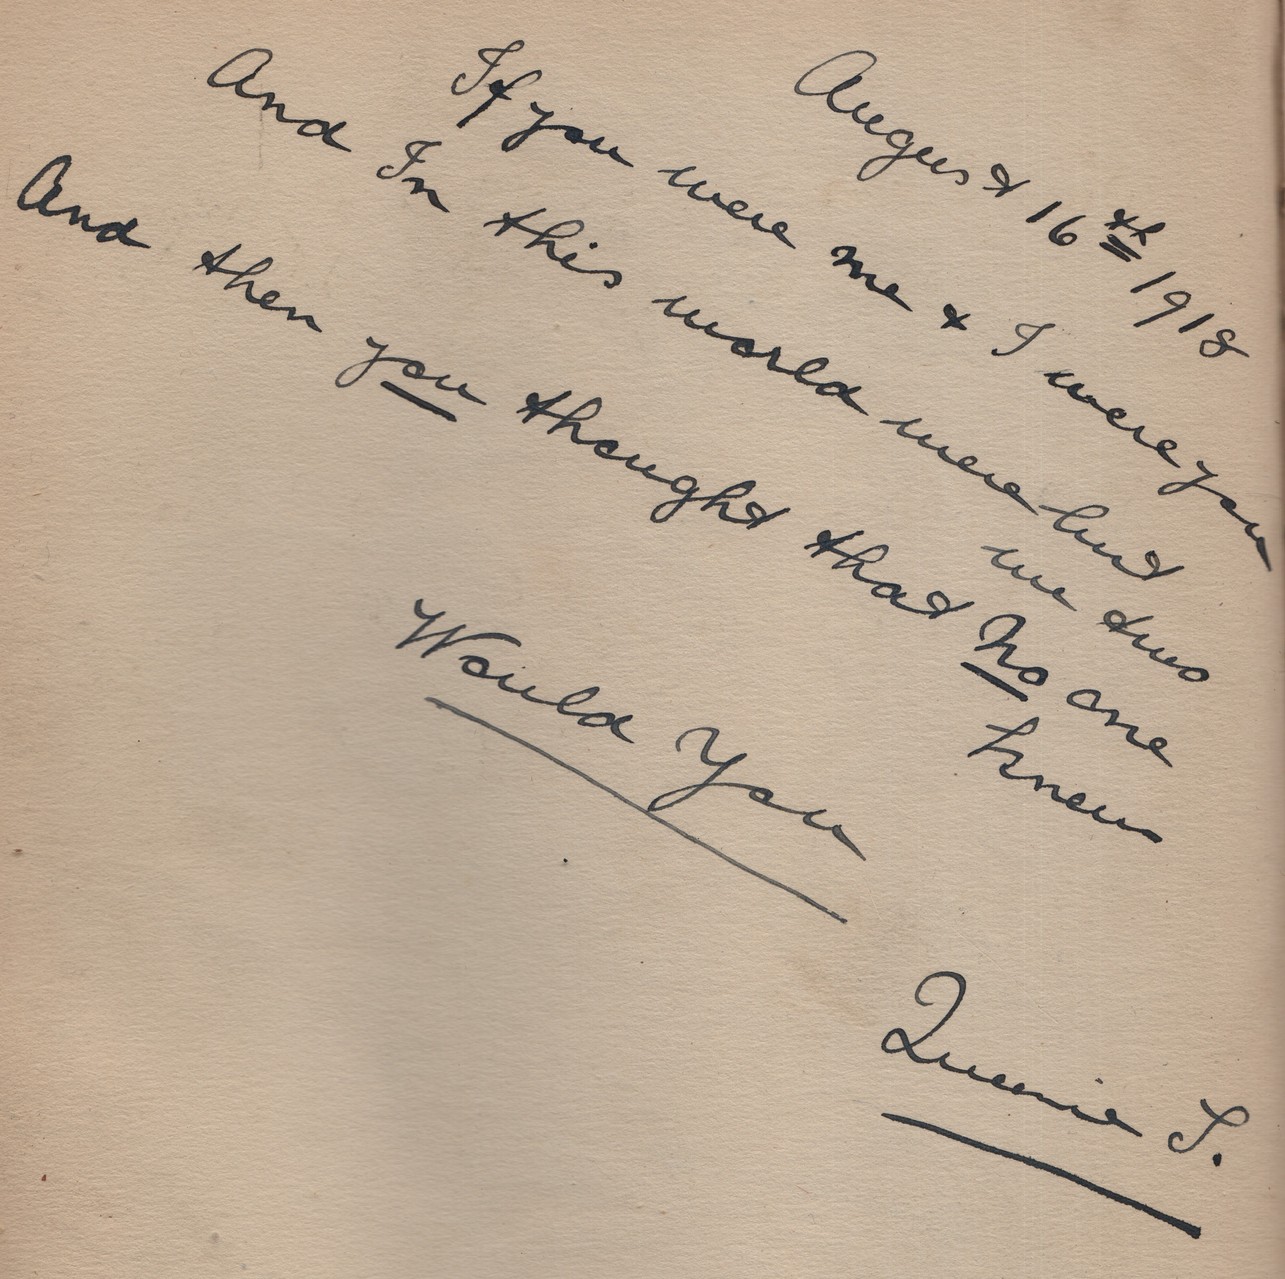 August 16th 1918
If you were me & I were you
And In this world were but
we two
And then you thought that No one
knew
Would You
Queenie S.